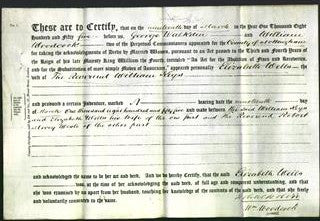 These are to Certify, that on the nineteenth day of March in the Year One Thousand Eight
Hundred and Fifty five before us, George Walkden and William
Woodcock two of the Perpetual Commissioners appointed for the County of Nottingham
for taking the acknowledgments of Deeds by Married Women, pursuant to an Act passed in the Third and Fourth Years of the
Reign of his late Majesty King William the Fourth, intituled "An Act for the Abolition of Fines and Recoveries,
and for the Substitution of more simple Modes of Assurance," appeared personally Elizabeth
wife of The Reverend William
and produced a certain Indenture marked A bearing date the nineteenth day
of March One thousand eight hundred and fifty five and made between the said William
and Elizabeth his Wife of the one part and the Reverend Robert
of the other part
and acknowledged the same to be her act and deed. And we do hereby Certify, that the said Elizabeth
was, at the time of her acknowledging the said deed, of full age and competent understanding, and that
she was examined by us apart from her husband, touching her knowledge of the contents of the said deed, and that she freely and
voluntarily consented to the same.
Wm Woodcock